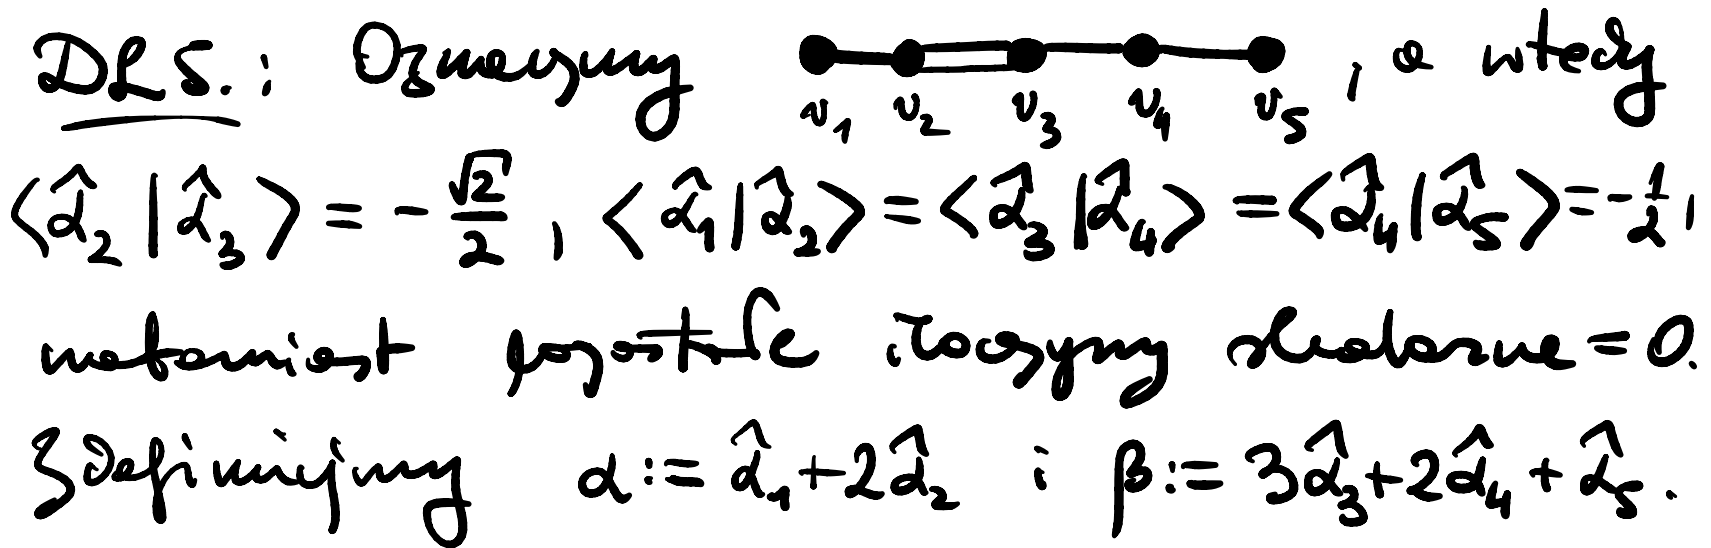 DLS.: Oznaczmy v₁ v₂ v₃ v₄ v₅, a wtedy
⟨α̂₂|α̂₃⟩ = -√2/2, ⟨α̂₁|α̂₂⟩ = ⟨α̂₃|α̂₄⟩ = ⟨α̂₄|α̂₅⟩ = -1/2,
natomiast pozostałe iloczyny skalarne = 0.
Zdefiniujmy α := α̂₁ + 2α̂₂ i β := 3α̂₃ + 2α̂₄ + α̂₅.